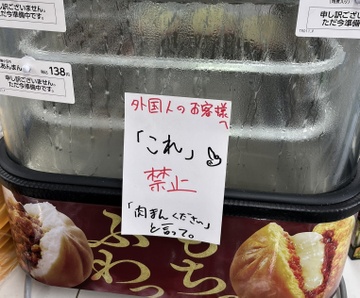 申し訳ございません。
ただ今準備中です。
あんまん
138円
申し訳ございません。
ただ今準備中です。
申し訳ございません。
ただ今準備中
外国人のお客様へ
「これ」
禁止
「肉まんください」
と言って。
もち
ふわっ